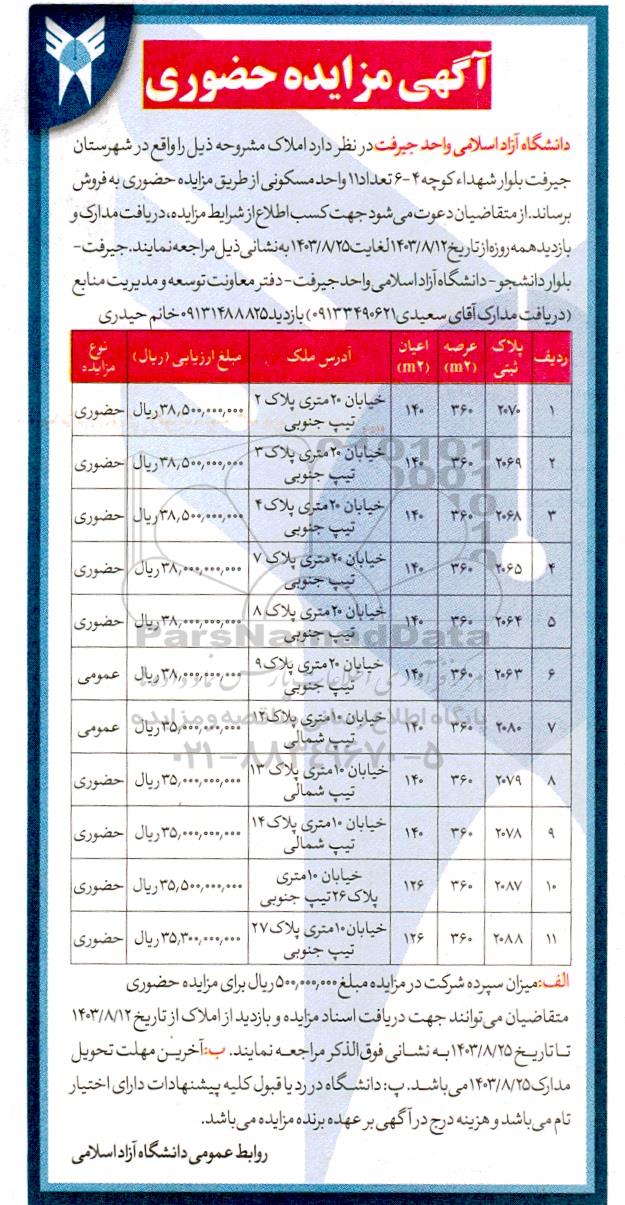 آگهی مزایده حضوری
دانشگاه آزاد اسلامی واحد جیرفت در نظر دارد املاک مشروحه ذیل را واقع در شهرستان
جیرفت بلوار شهداء کوچه ۴-۶ تعداد ۱۱ واحد مسکونی از طریق مزایده حضوری به فروش
برساند. از متقاضیان دعوت می شود جهت کسب اطلاع از شرایط مزایده، دریافت مدارک و
بازدید همه روزه از تاریخ ۱۴۰۳/۸/۱۲ لغایت ۱۴۰۳/۸/۲۵ به نشانی ذیل مراجعه نمایند. جیرفت-
بلوار دانشجو - دانشگاه آزاد اسلامی واحد جیرفت - دفتر معاونت توسعه و مدیریت منابع
(دریافت مدارک آقای سعیدی ۰۹۱۳۳۴۹۰۶۲۱) بازدید ۰۹۱۳۱۴۸۸۸۲۵ خانم حیدری
ردیف | پلاک ثبتی | عرصه (m۲) | اعیان (m۲) | آدرس ملک | مبلغ ارزیابی (ریال) | نوع مزایده
۱ | ۲۰۷۰ | ۳۶۰ | ۱۴۰ | خیابان ۲۰ متری پلاک ۲ تیپ جنوبی | ۳۸,۵۰۰,۰۰۰,۰۰۰ ریال | حضوری
۲ | ۲۰۶۹ | ۳۶۰ | ۱۴۰ | خیابان ۲۰ متری پلاک ۳ تیپ جنوبی | ۳۸,۵۰۰,۰۰۰,۰۰۰ ریال | حضوری
۳ | ۲۰۶۸ | ۳۶۰ | ۱۴۰ | خیابان ۲۰ متری پلاک ۴ تیپ جنوبی | ۳۸,۵۰۰,۰۰۰,۰۰۰ ریال | حضوری
۴ | ۲۰۶۵ | ۳۶۰ | ۱۴۰ | خیابان ۲۰ متری پلاک ۷ تیپ جنوبی | ۳۸,۰۰۰,۰۰۰,۰۰۰ ریال | حضوری
۵ | ۲۰۶۴ | ۳۶۰ | ۱۴۰ | خیابان ۲۰ متری پلاک ۸ تیپ جنوبی | ۳۸,۰۰۰,۰۰۰,۰۰۰ ریال | حضوری
۶ | ۲۰۶۳ | ۳۶۰ | ۱۴۰ | خیابان ۲۰ متری پلاک ۹ تیپ جنوبی | ۳۸,۰۰۰,۰۰۰,۰۰۰ ریال | عمومی
۷ | ۲۰۸۰ | ۳۶۰ | ۱۴۰ | خیابان ۱۰ متری پلاک ۱۲ تیپ شمالی | ۳۵,۰۰۰,۰۰۰,۰۰۰ ریال | عمومی
۸ | ۲۰۷۹ | ۳۶۰ | ۱۴۰ | خیابان ۱۰ متری پلاک ۱۳ تیپ شمالی | ۳۵,۰۰۰,۰۰۰,۰۰۰ ریال | حضوری
۹ | ۲۰۷۸ | ۳۶۰ | ۱۴۰ | خیابان ۱۰ متری پلاک ۱۴ تیپ شمالی | ۳۵,۰۰۰,۰۰۰,۰۰۰ ریال | حضوری
۱۰ | ۲۰۸۷ | ۳۶۰ | ۱۲۶ | خیابان ۱۰ متری پلاک ۲۶ تیپ جنوبی | ۳۵,۵۰۰,۰۰۰,۰۰۰ ریال | حضوری
۱۱ | ۲۰۸۸ | ۳۶۰ | ۱۲۶ | خیابان ۱۰ متری پلاک ۲۷ تیپ جنوبی | ۳۵,۳۰۰,۰۰۰,۰۰۰ ریال | حضوری
ParsNamadData
پایگاه اطلاع رسانی مناقصه و مزایده
۰۲۱-۸۸۳۴۹۶۷۰-۵
الف: میزان سپرده شرکت در مزایده مبلغ ۵۰۰,۰۰۰,۰۰۰ ریال برای مزایده حضوری
متقاضیان می توانند جهت دریافت اسناد مزایده و بازدید از املاک از تاریخ ۱۴۰۳/۸/۱۲
تا تاریخ ۱۴۰۳/۸/۲۵ به نشانی فوق الذکر مراجعه نمایند. ب: آخرین مهلت تحویل
مدارک ۱۴۰۳/۸/۲۵ می باشد. پ: دانشگاه در رد یا قبول کلیه پیشنهادات دارای اختیار
تام می باشد و هزینه درج در آگهی بر عهده برنده مزایده می باشد.
روابط عمومی دانشگاه آزاد اسلامی